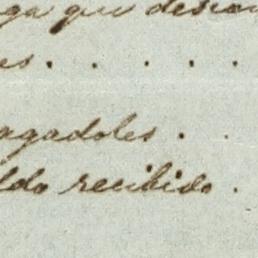 ga que descon
es . . . . .
agadoles . .
ldo recibido .